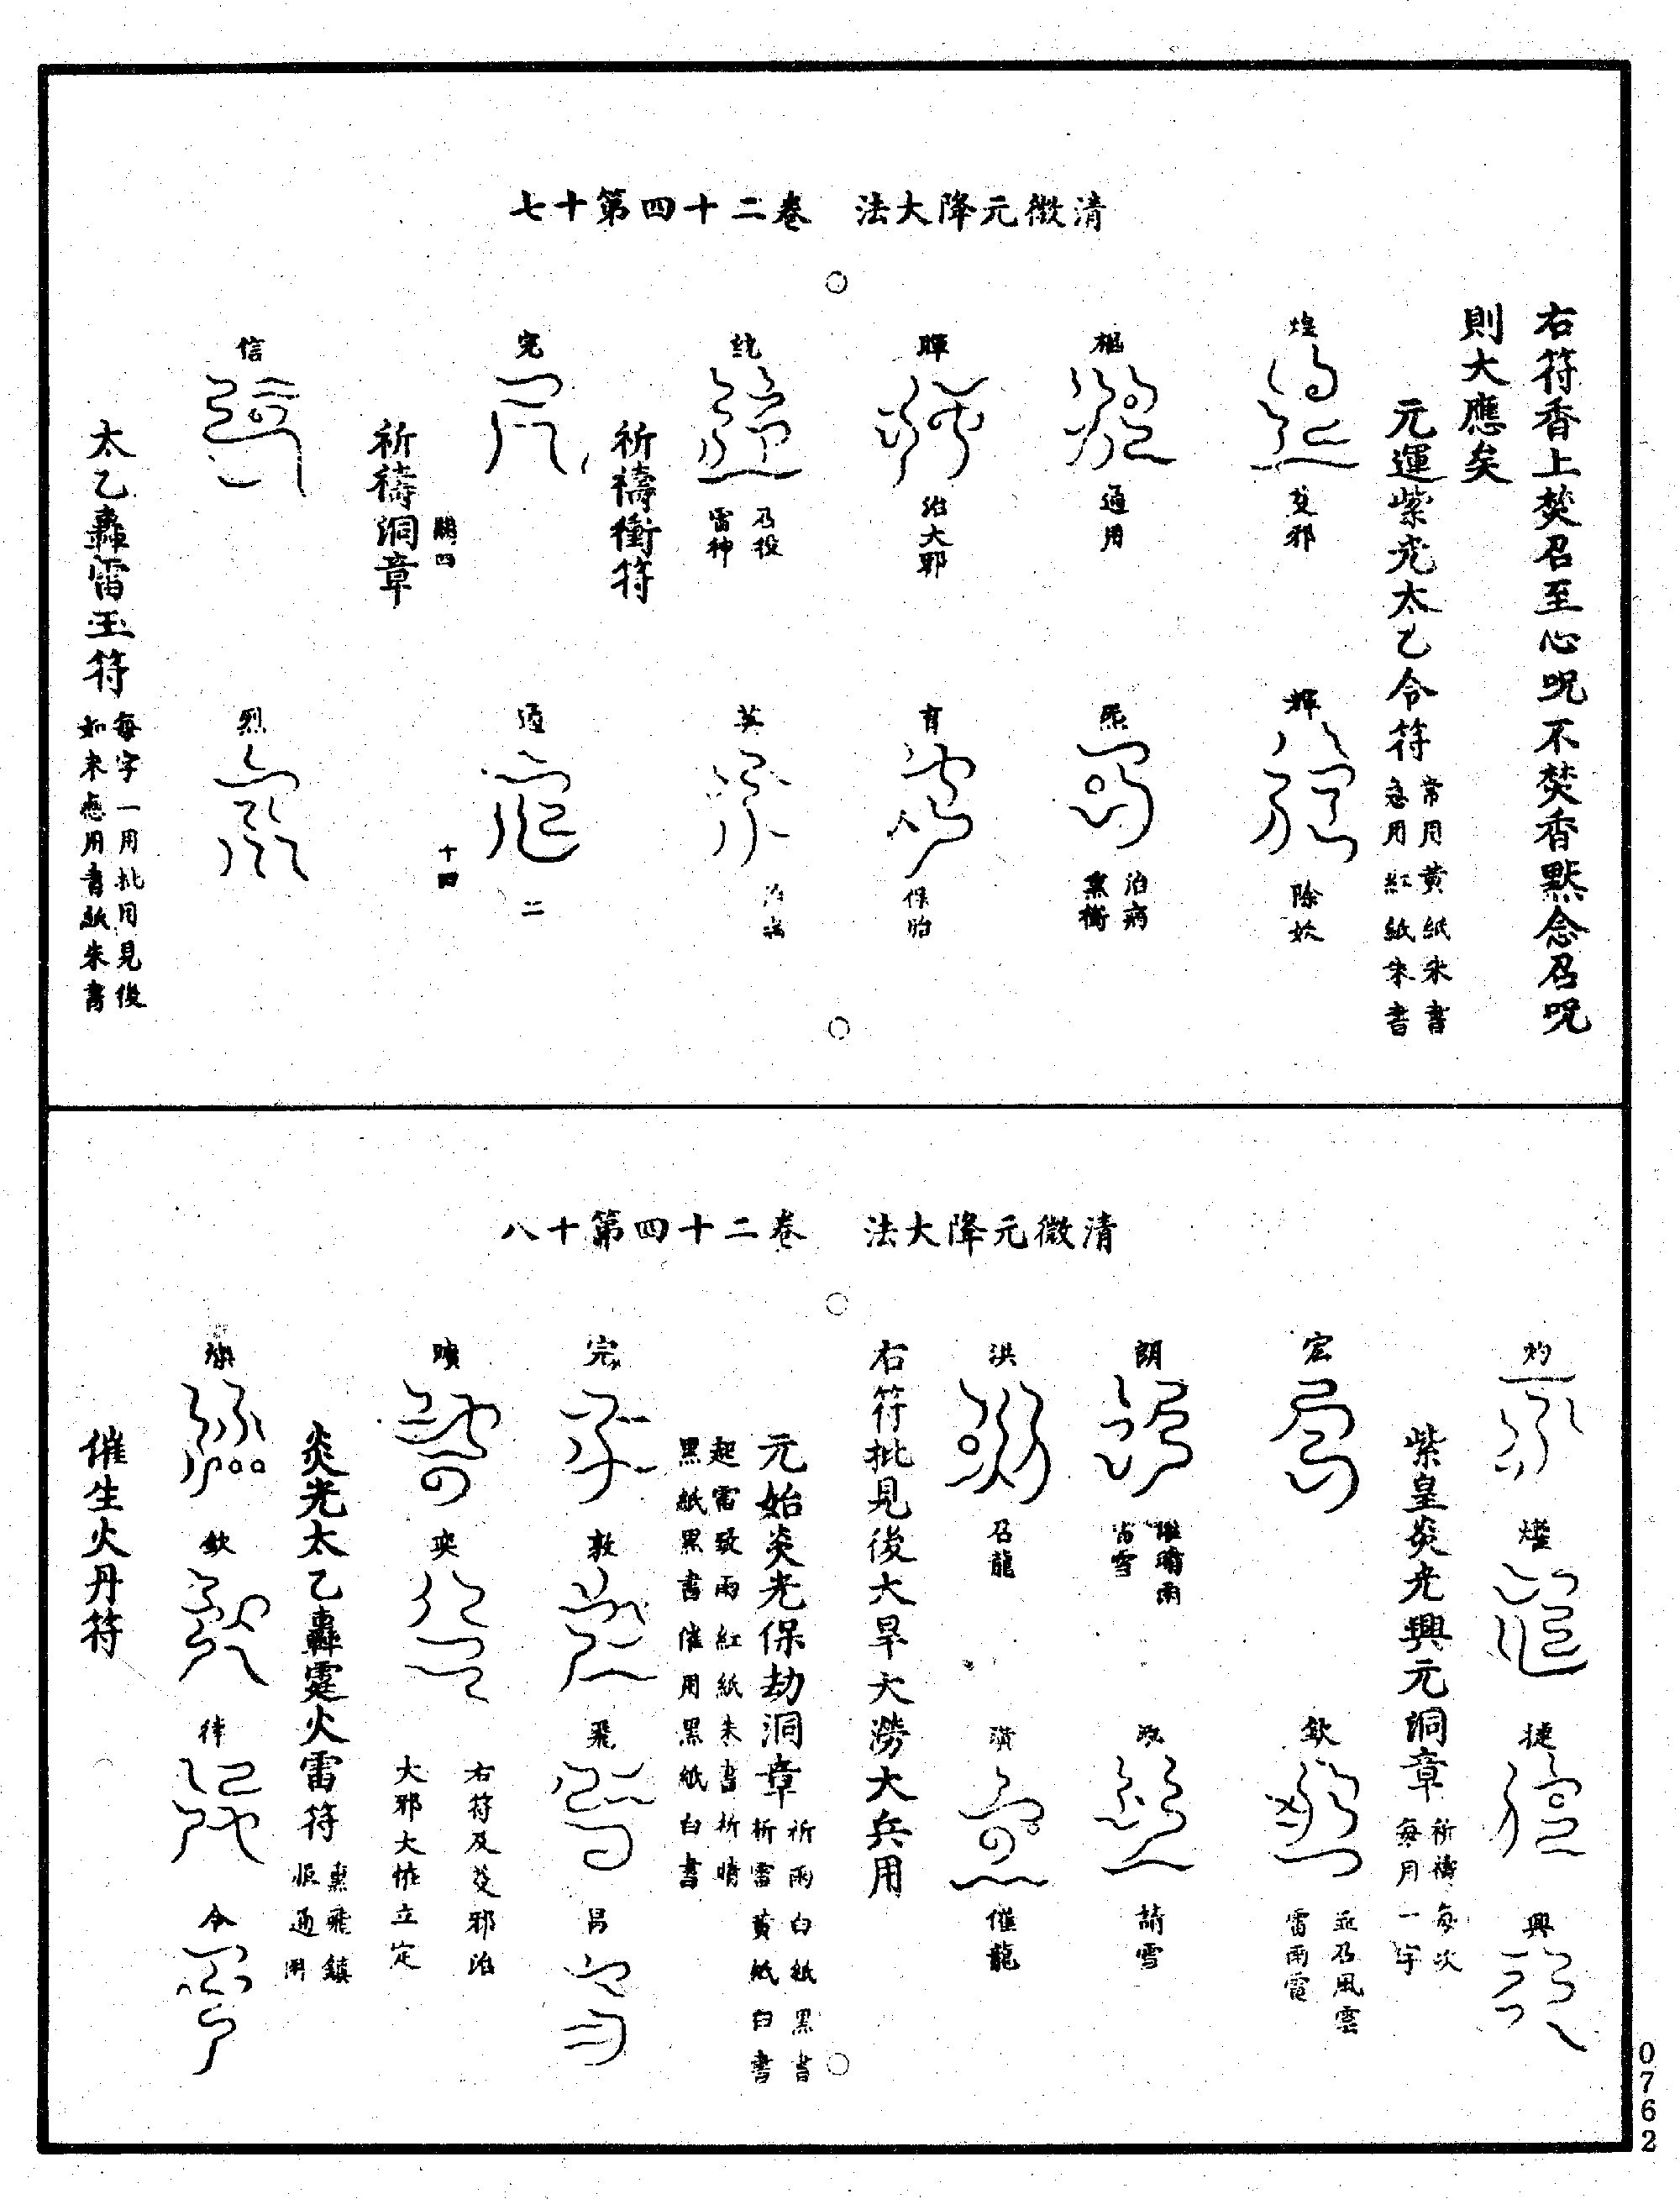 清微元降大法　卷二十四第十七
右符香上焚召至心呪不焚香默念召呪
則大應矣
元運紫光太乙令符
常用黃紙朱書
急用紅紙朱書
煌
伐邪
輝
除妖
樞
通用
治病
暉
治大邪
育
保胎
乃役
雷神
英
祈禱衝符
完
二
四
十四
祈禱洞章
信
烈
太乙轟雷玉符
每字一用批用見後
如未應用青紙朱書
清微元降大法　卷二十四第十八
灼
燿
捷
興
紫皇炎光興元洞章
祈禱每次
每月一字
宏
欽
召風雲
雷雨電
朗
雪
請雪
洪
召龍
濟
催龍
右符批見後大旱大澇大兵用
元始炎光保劫洞章
祈雨白紙黑書
祈雷黃紙白書
起雷致雨紅紙朱書祈晴
黑紙黑書催用黑紙白書
完
敦
飛
昌
右符及伐邪治
大邪大怪立定
曠
奕
炎光太乙轟霆火雷符
欽
律
令
催生火丹符
0762